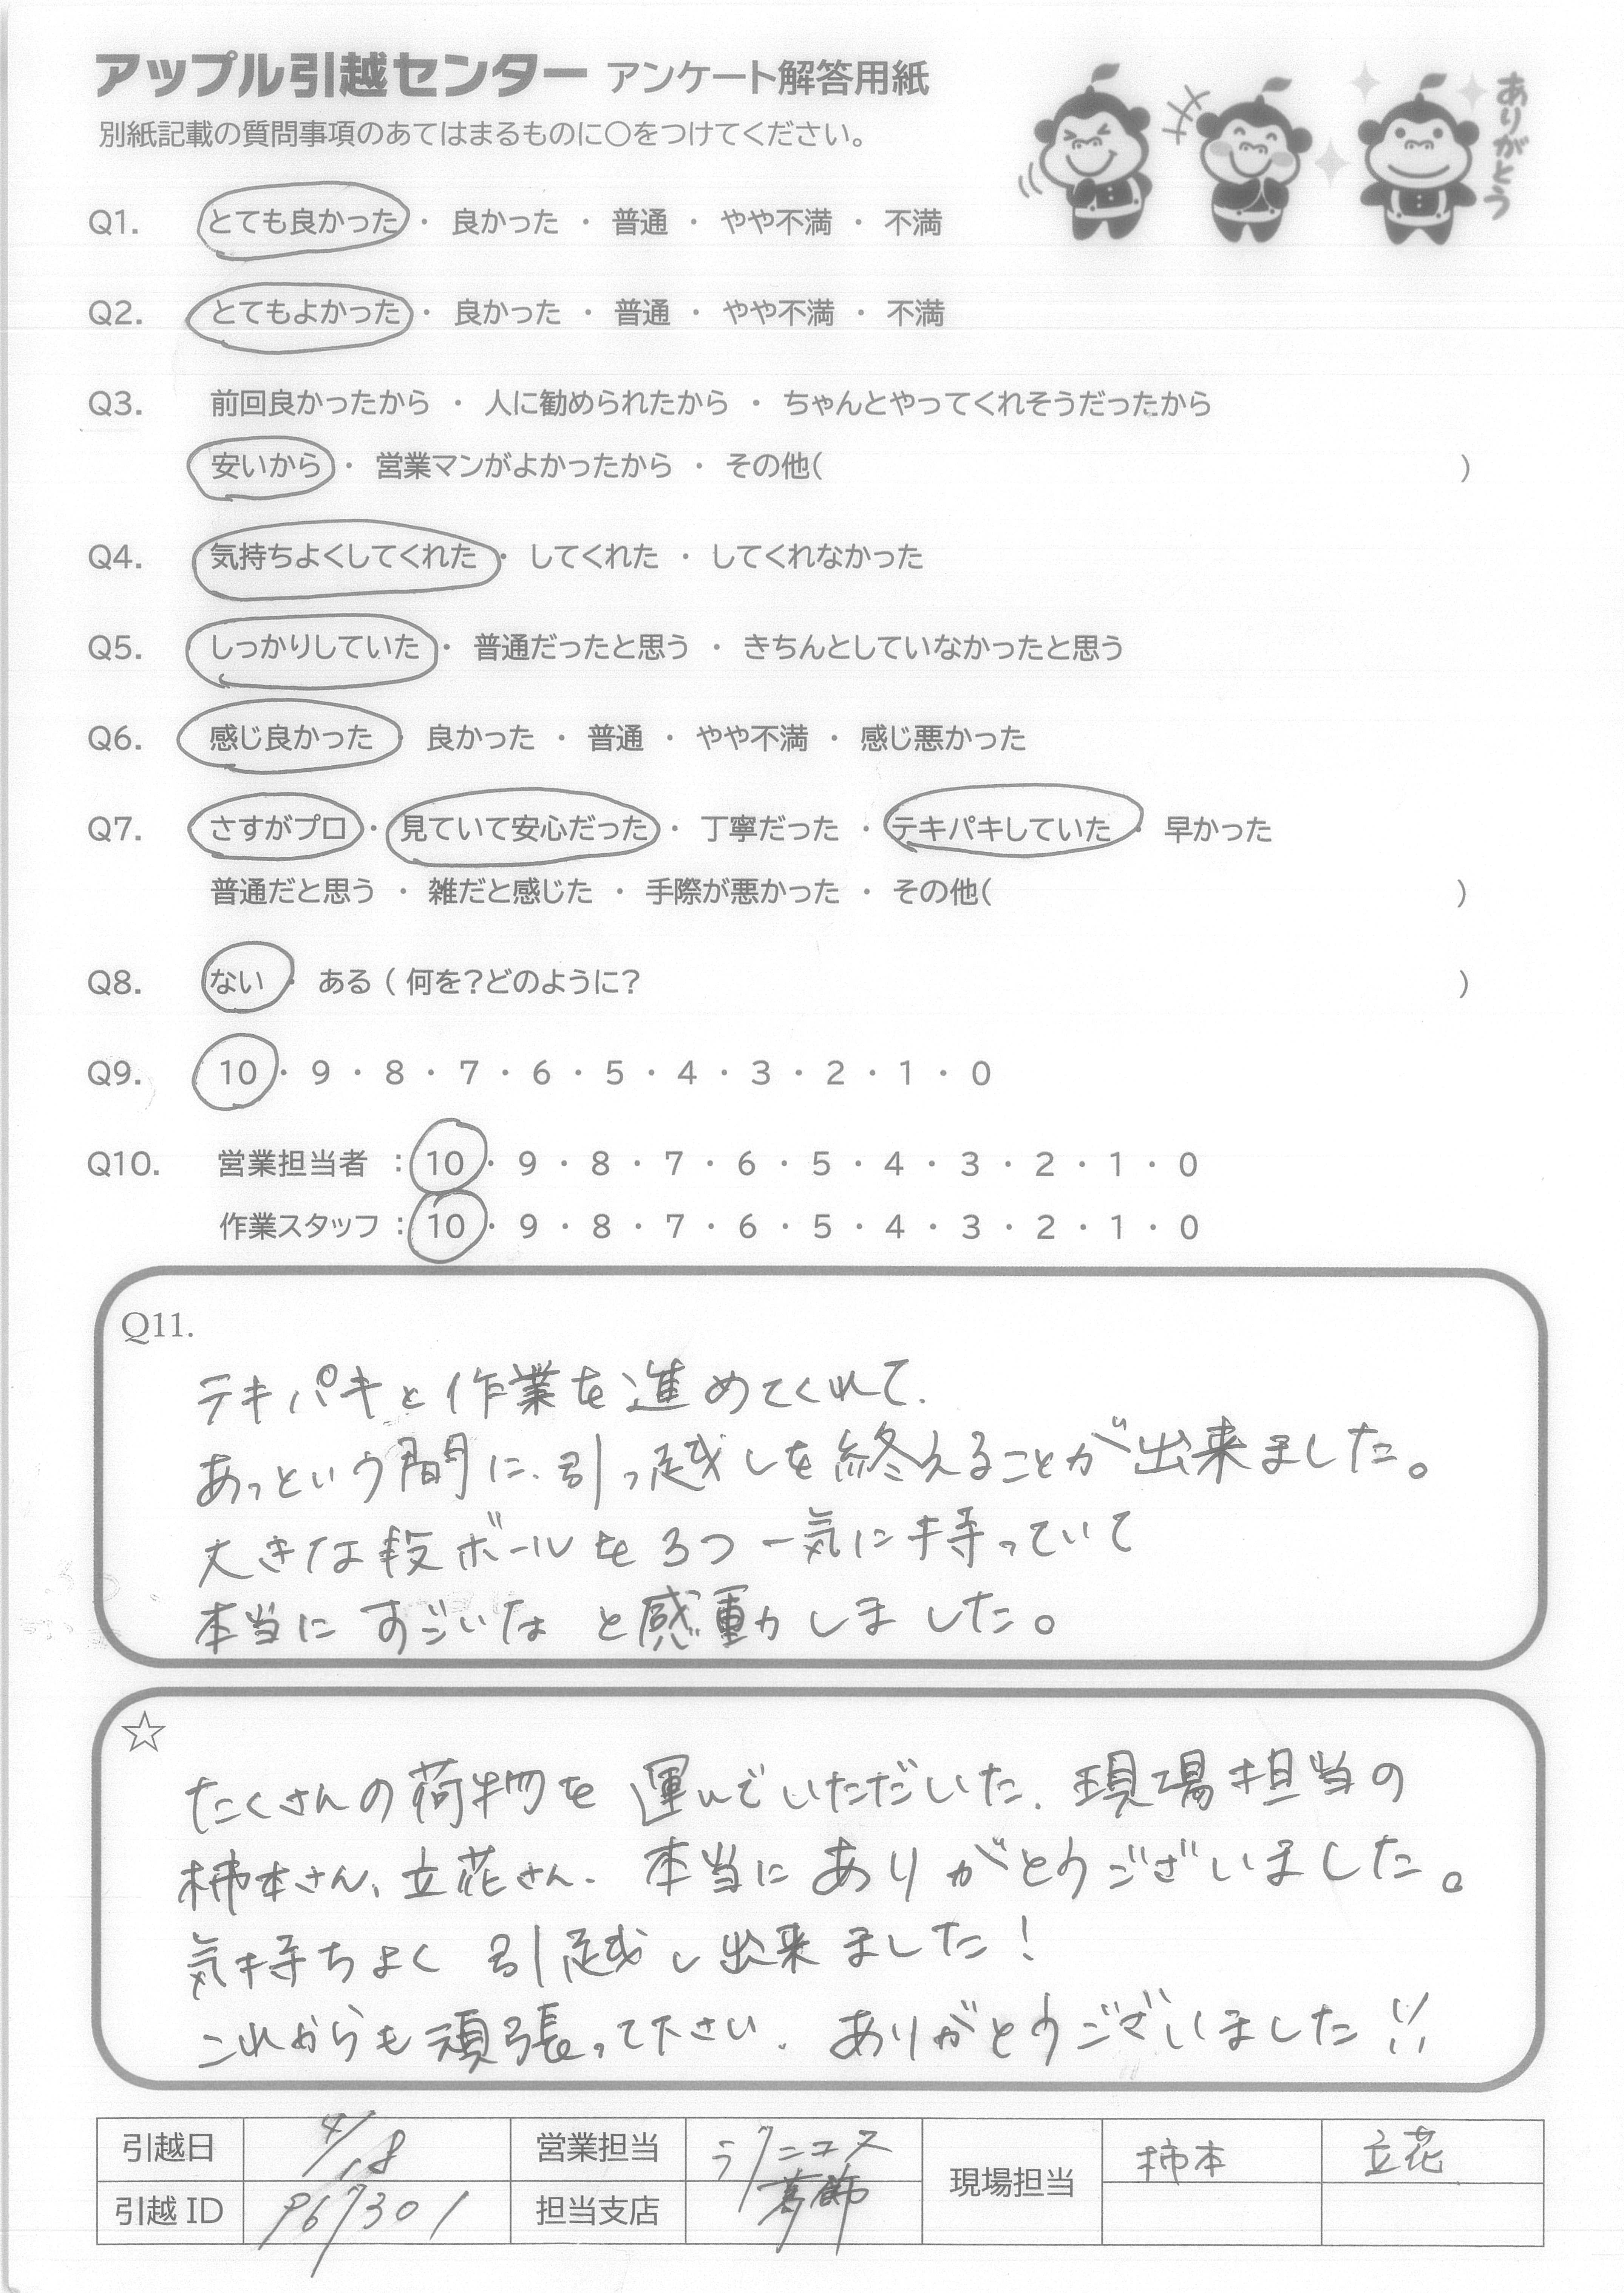 アップル引越センター アンケート解答用紙
別紙記載の質問事項のあてはまるものに○をつけてください。
ありがとう
Q1. とても良かった ・ 良かった ・ 普通 ・ やや不満 ・ 不満
Q2. とてもよかった ・ 良かった ・ 普通 ・ やや不満 ・ 不満
Q3. 前回良かったから ・ 人に勧められたから ・ ちゃんとやってくれそうだったから
安いから ・ 営業マンがよかったから ・ その他( )
Q4. 気持ちよくしてくれた ・ してくれた ・ してくれなかった
Q5. しっかりしていた ・ 普通だったと思う ・ きちんとしていなかったと思う
Q6. 感じ良かった ・ 良かった ・ 普通 ・ やや不満 ・ 感じ悪かった
Q7. さすがプロ ・ 見ていて安心だった ・ 丁寧だった ・ テキパキしていた ・ 早かった
普通だと思う ・ 雑だと感じた ・ 手際が悪かった ・ その他( )
Q8. ない ・ ある ( 何を?どのように? )
Q9. 10 ・ 9 ・ 8 ・ 7 ・ 6 ・ 5 ・ 4 ・ 3 ・ 2 ・ 1 ・ 0
Q10. 営業担当者 : 10 ・ 9 ・ 8 ・ 7 ・ 6 ・ 5 ・ 4 ・ 3 ・ 2 ・ 1 ・ 0
作業スタッフ : 10 ・ 9 ・ 8 ・ 7 ・ 6 ・ 5 ・ 4 ・ 3 ・ 2 ・ 1 ・ 0
Q11.
テキパキと作業を進めてくれて、
あっという間に、引っ越しを終えることが出来ました。
大きな段ボールを3つ一気に持っていて
本当にすごいなと感動しました。
☆
たくさんの荷物を運んでいただいた、現場担当の
柿本さん、立花さん、本当にありがとうございました。
気持ちよく引越し出来ました!
これからも頑張って下さい。ありがとうございました!!
引越日 4/18 営業担当 現場担当 柿本 立花
引越ID P67301 担当支店 葛飾